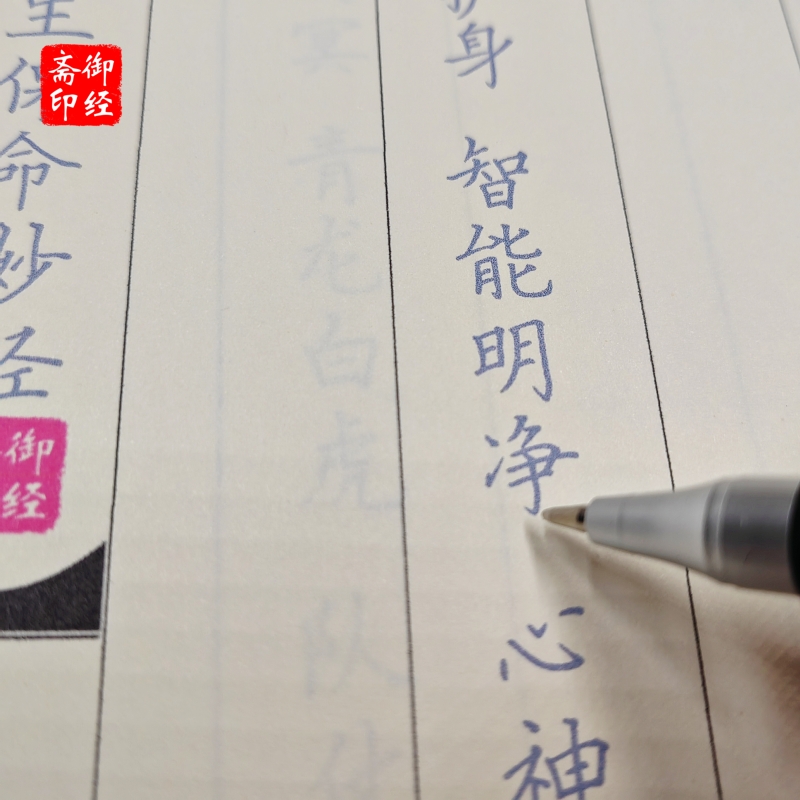 御经
斋印
身 智能明净 心神
冥 青龙白虎 队
保命妙经
御经